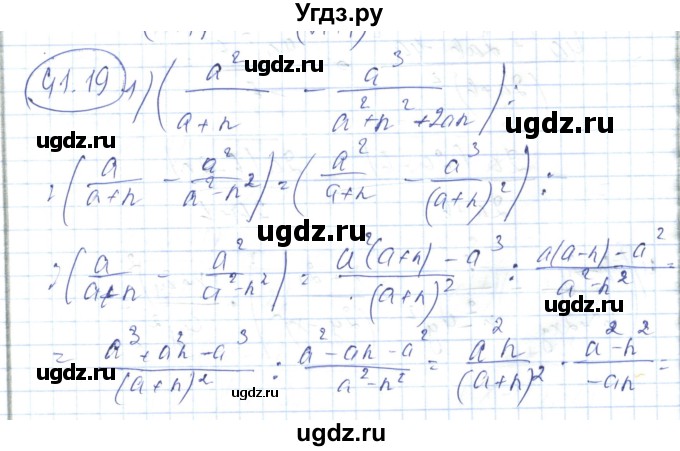 Угдз.ру
41.19 1) (a²/(a+n) - a³/(a²+n²+2an)) :
ugdz.ru ugdz.ru
: (a/(a+n) - a²/(a²-n²)) = (a²/(a+n) - a³/(a+n)²) :
ugdz.ru ugdz.ru
: (a/(a+n) - a²/(a²-n²)) = (a²(a+n) - a³)/(a+n)² : (a(a-n) - a²)/(a²-n²) =
ugdz.ru
ugdz.ru ugdz.ru
= (a³+a²n-a³)/(a+n)² : (a²-an-a²)/(a²-n²) = a²n/(a+n)² · (a²-n²)/(-an) =
ugdz.ru ugdz.ru
ugdz.ru